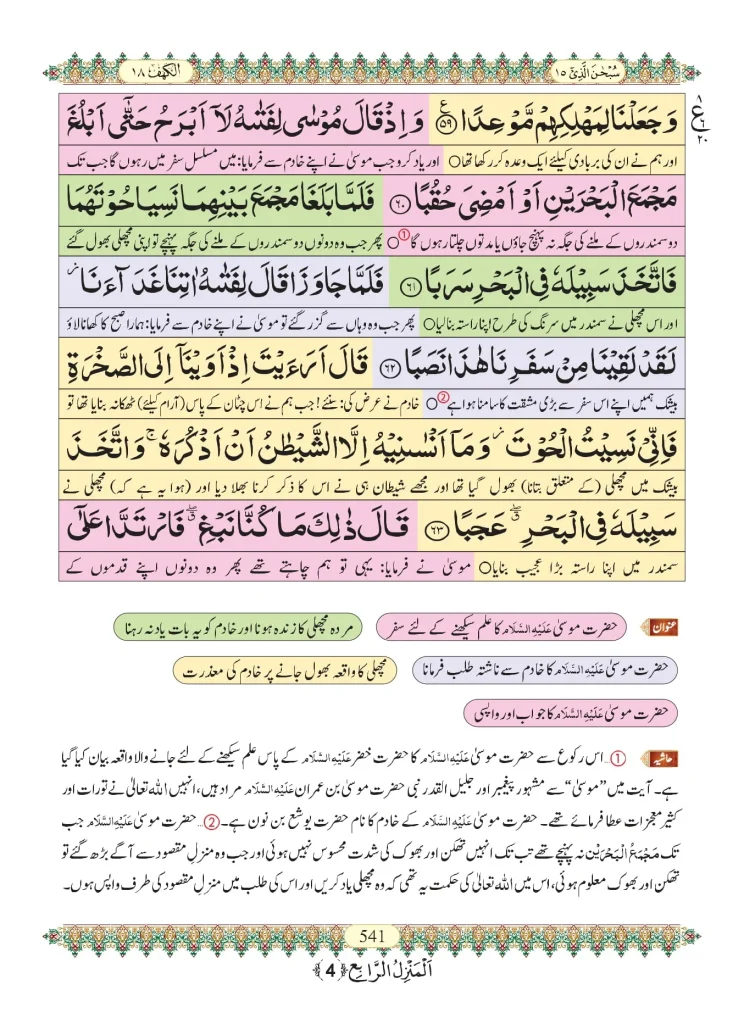 سُبْحٰنَ الَّذِیْۤ ١٥
الکہف ١٨
ع ٨ ٦ ٢٠
وَ جَعَلْنَا لِمَهْلِكِهِمْ مَّوْعِدًا ﴿٥٩﴾ وَ اِذْ قَالَ مُوْسٰى لِفَتٰىهُ لَاۤ اَبْرَحُ حَتّٰۤى اَبْلُغَ
اور ہم نے ان کی بربادی کیلئے ایک وعدہ کر رکھا تھا○ اور یاد کرو جب موسیٰ نے اپنے خادم سے فرمایا: میں مسلسل سفر میں رہوں گا جب تک
مَجْمَعَ الْبَحْرَیْنِ اَوْ اَمْضِیَ حُقُبًا ﴿٦٠﴾ فَلَمَّا بَلَغَا مَجْمَعَ بَیْنِهِمَا نَسِیَا حُوْتَهُمَا
دو سمندروں کے ملنے کی جگہ نہ پہنچ جاؤں یا مدتوں چلتا رہوں گا①○ پھر جب وہ دونوں دو سمندروں کے ملنے کی جگہ پہنچے تو اپنی مچھلی بھول گئے
فَاتَّخَذَ سَبِیْلَهٗ فِی الْبَحْرِ سَرَبًا ﴿٦١﴾ فَلَمَّا جَاوَزَا قَالَ لِفَتٰىهُ اٰتِنَا غَدَآءَنَا ٘
اور اس مچھلی نے سمندر میں سرنگ کی طرح اپنا راستہ بنالیا○ پھر جب وہ وہاں سے گزر گئے تو موسیٰ نے اپنے خادم سے فرمایا: ہمارا صبح کا کھانا لاؤ
لَقَدْ لَقِیْنَا مِنْ سَفَرِنَا هٰذَا نَصَبًا ﴿٦٢﴾ قَالَ اَرَءَیْتَ اِذْ اَوَیْنَاۤ اِلَى الصَّخْرَةِ
بیشک ہمیں اپنے اس سفر سے بڑی مشقت کا سامنا ہوا ہے②○ خادم نے عرض کی: سنئے! جب ہم نے اس چٹان کے پاس (آرام کیلئے) ٹھکانہ بنایا تھا تو
فَاِنِّیْ نَسِیْتُ الْحُوْتَ ٘ وَ مَاۤ اَنْسٰىنِیْهُ اِلَّا الشَّیْطٰنُ اَنْ اَذْكُرَهٗ ۚ وَ اتَّخَذَ
بیشک میں مچھلی (کے متعلق بتانا) بھول گیا تھا اور مجھے شیطان ہی نے اس کا ذکر کرنا بھلا دیا اور (ہوا یہ ہے کہ) مچھلی نے
سَبِیْلَهٗ فِی الْبَحْرِ ۖۗ عَجَبًا ﴿٦٣﴾ قَالَ ذٰلِكَ مَا كُنَّا نَبْغِ ۖۗ فَارْتَدَّا عَلٰۤى
سمندر میں اپنا راستہ بڑا عجیب بنایا○ موسیٰ نے فرمایا: یہی تو ہم چاہتے تھے پھر وہ دونوں اپنے قدموں کے
عنوان حضرت موسیٰ عَلَیْہِ السَّلَام کا علم سیکھنے کے لئے سفر مردہ مچھلی کا زندہ ہونا اور خادم کو یہ بات یاد نہ رہنا
حضرت موسیٰ عَلَیْہِ السَّلَام کا خادم سے ناشتہ طلب فرمانا مچھلی کا واقعہ بھول جانے پر خادم کی معذرت
حضرت موسیٰ عَلَیْہِ السَّلَام کا جواب اور واپسی
حاشیہ ①... اس رکوع سے حضرت موسیٰ عَلَیْہِ السَّلَام کا حضرت خضر عَلَیْہِ السَّلَام کے پاس علم سیکھنے کے لئے جانے والا واقعہ بیان کیا گیا
ہے۔ آیت میں ”موسیٰ“ سے مشہور پیغمبر اور جلیل القدر نبی حضرت موسیٰ بن عمران عَلَیْہِ السَّلَام مراد ہیں، انہیں اللہ تعالیٰ نے تورات اور
کثیر معجزات عطا فرمائے تھے۔ حضرت موسیٰ عَلَیْہِ السَّلَام کے خادم کا نام حضرت یوشع بن نون ہے۔ ②... حضرت موسیٰ عَلَیْہِ السَّلَام جب
تک مَجْمَعُ الْبَحْرَیْن نہ پہنچے تھے تب تک انہیں تھکن اور بھوک کی شدت محسوس نہیں ہوئی اور جب وہ منزلِ مقصود سے آگے بڑھ گئے تو
تھکن اور بھوک معلوم ہوئی، اس میں اللہ تعالیٰ کی حکمت یہ تھی کہ وہ مچھلی یاد کریں اور اس کی طلب میں منزلِ مقصود کی طرف واپس ہوں۔
541
اَلْمَنْزِلُ الرَّابِع ﴿4﴾